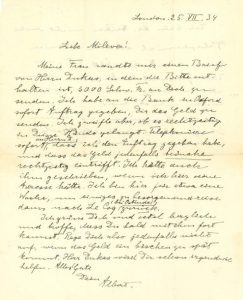 London 25. VII. 34
Liebe Mileva!
Meine Frau sandte mir einen Brief
von Herrn Dukas, in dem die Bitte ent-
halten ist, 3000 Schw. Fr. an Dich zu
senden. Ich habe an die Bank in Oxford
sofort Auftrag gegeben, Dir das Geld zu
senden. Ich zweifle aber, ob es rechtzeitig
in Deine Hände gelangt. Telephoniere
sofort, dass ich den Auftrag gegeben habe,
und dass das Geld jedenfalls beinahe
rechtzeitig eintrifft. Ich hätte auch
ihm geschrieben, wenn ich hier seine
Adresse hätte. Ich bin hier für etwa eine
Woche, um einiges zu besorgen und reise
dann nach
Ich grüsse Dich und
und hoffe, dass Du bald
kannst. Rege Dich aber jedenfalls nicht
auf, wenn das Geld ein bisschen zu spät
kommt. Herr Dukas wird Dir schon irgendwie
helfen. Alles Gute
Dein
Albert.